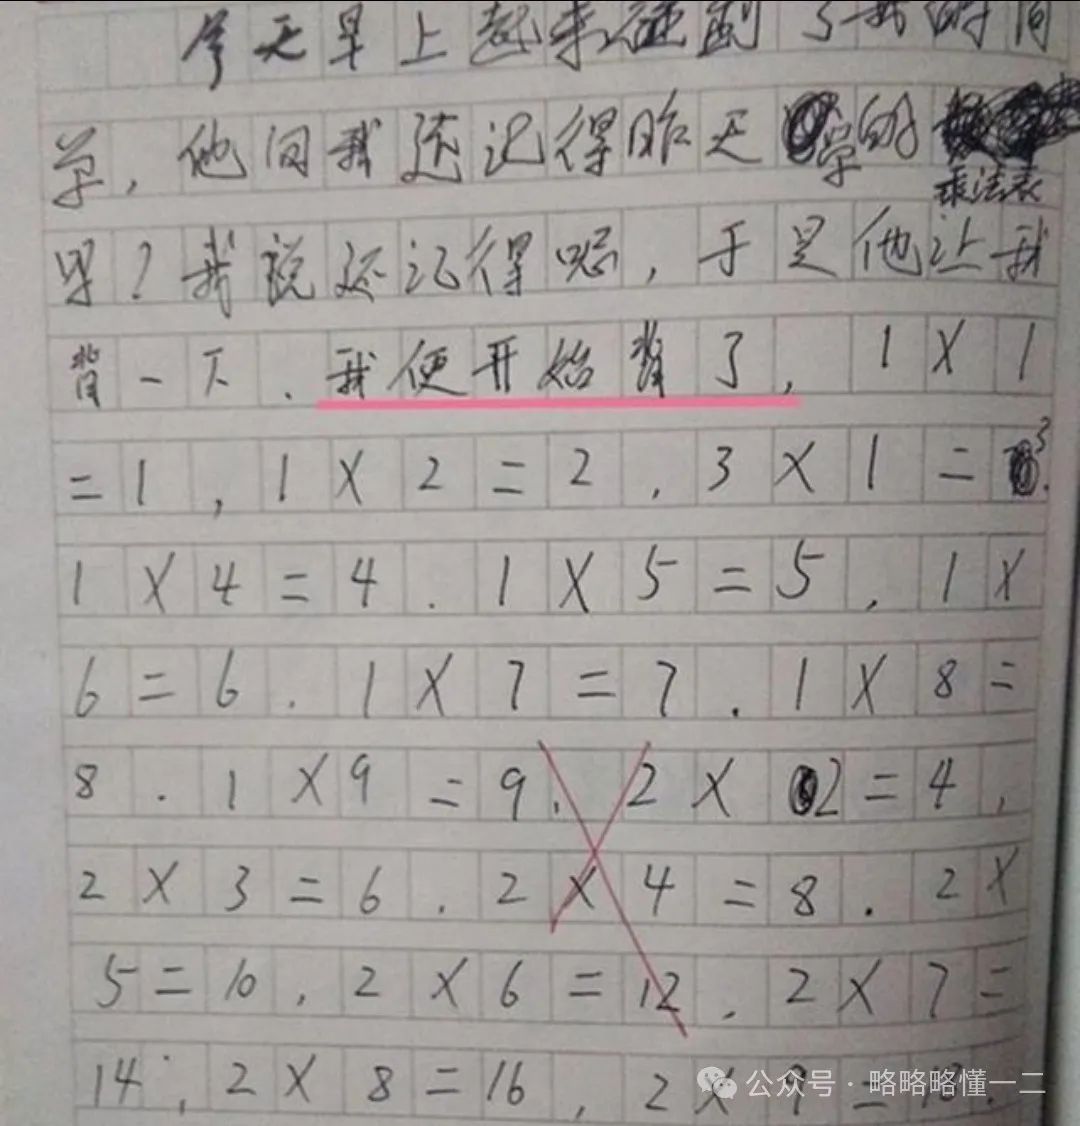 今天早上起来碰到了我的同
学，他问我还记得昨天学的
乘法表
吗？我说还记得呢，于是他让我
背一下．我便开始背了，1×1
=1，1×2=2．3×1=3．
1×4=4．1×5=5，1×
6=6．1×7=7．1×8=
8．1×9=9．2×2=4，
2×3=6．2×4=8．2×
5=10，2×6=12．2×7=
14，2×8=16，2×9=18．
公众号·略略略懂一二